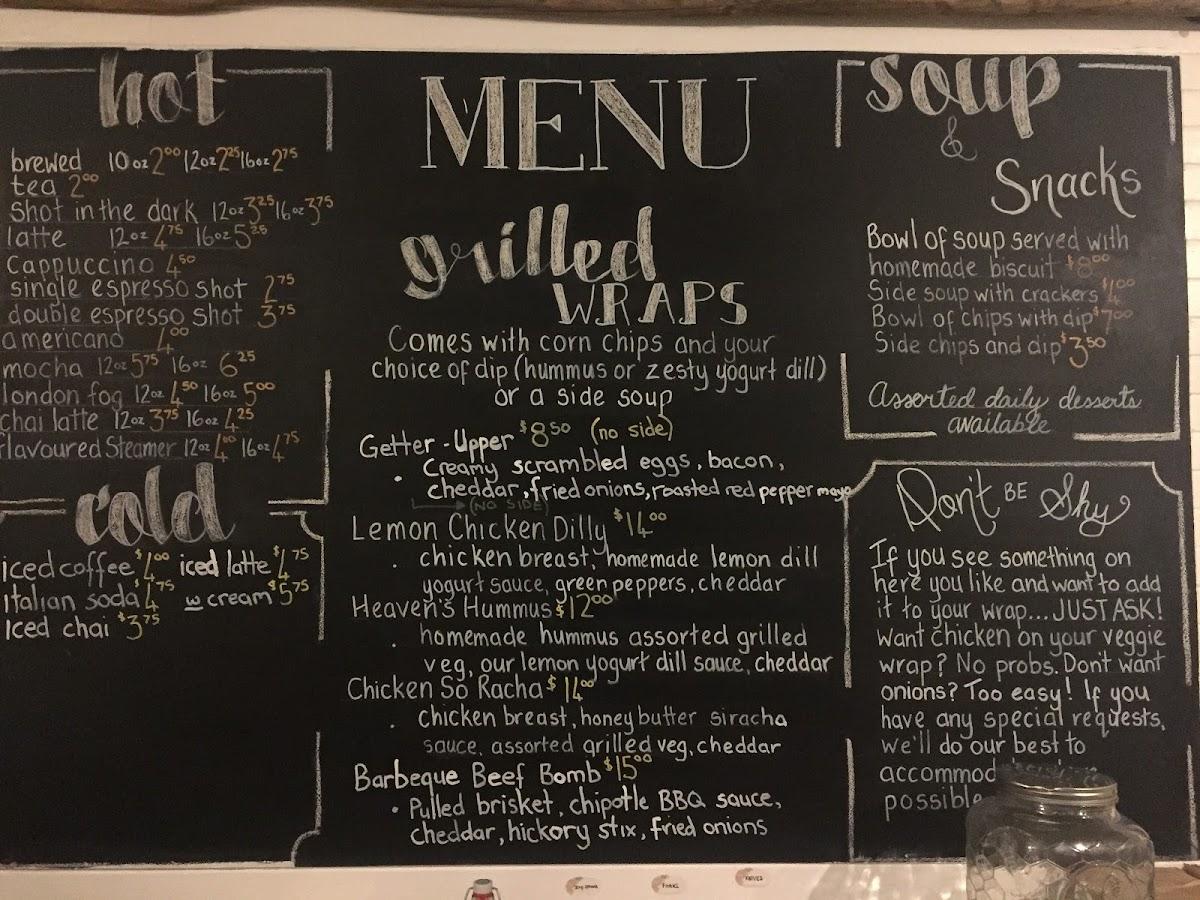 hot
brewed 10oz 2.00 12oz 2.25 16oz 2.75
tea 2.00
Shot in the dark 12oz 3.25 16oz 3.75
latte 12oz 4.75 16oz 5.25
Cappuccino 4.50
single espresso shot 2.75
double espresso shot 3.75
americano 4.00
mocha 12oz 5.75 16oz 6.25
london fog 12oz 4.50 16oz 5.00
chai latte 12oz 3.75 16oz 4.25
flavoured Steamer 12oz 4.00 16oz 4.75
cold
iced coffee $4.00 iced latte $4.75
Italian soda $4.75 w cream $5.75
Iced chai $3.75
MENU
grilled
WRAPS
Comes with corn chips and your
choice of dip (hummus or zesty yogurt dill)
or a side soup
Getter-Upper $8.50 (no side)
• Creamy scrambled eggs, bacon,
• cheddar, fried onions, roasted red pepper mayo
(NO SIDE)
Lemon Chicken Dilly $14.00
• chicken breast, homemade lemon dill
yogurt sauce, green peppers, cheddar
Heaven's Hummus $12.00
• homemade hummus assorted grilled
veg, our lemon yogurt dill sauce, cheddar
Chicken So Racha $14.00
• chicken breast, honey butter siracha
sauce, assorted grilled veg, cheddar
Barbeque Beef Bomb $15.00
• Pulled brisket, chipotle BBQ sauce,
cheddar, hickory stix, fried onions
soup
&
Snacks
Bowl of soup served with
homemade biscuit $8.00
Side soup with crackers $4.00
Bowl of chips with dip $7.00
Side chips and dip $3.50
Assorted daily desserts
available
Don't BE Shy
If you see something on
here you like and want to add
it to your wrap... JUST ASK!
Want chicken on your veggie
wrap? No probs. Don't want
onions? Too easy! If you
have any special requests,
we'll do our best to
accommod
possible
FORKS
KNIVES